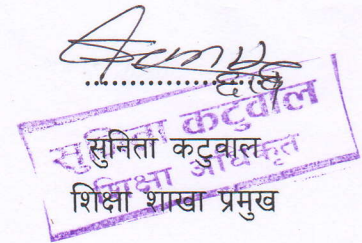 सुनिता कटुवाल
शिक्षा अधिकृत
सुनिता कटुवाल
शिक्षा शाखा प्रमुख